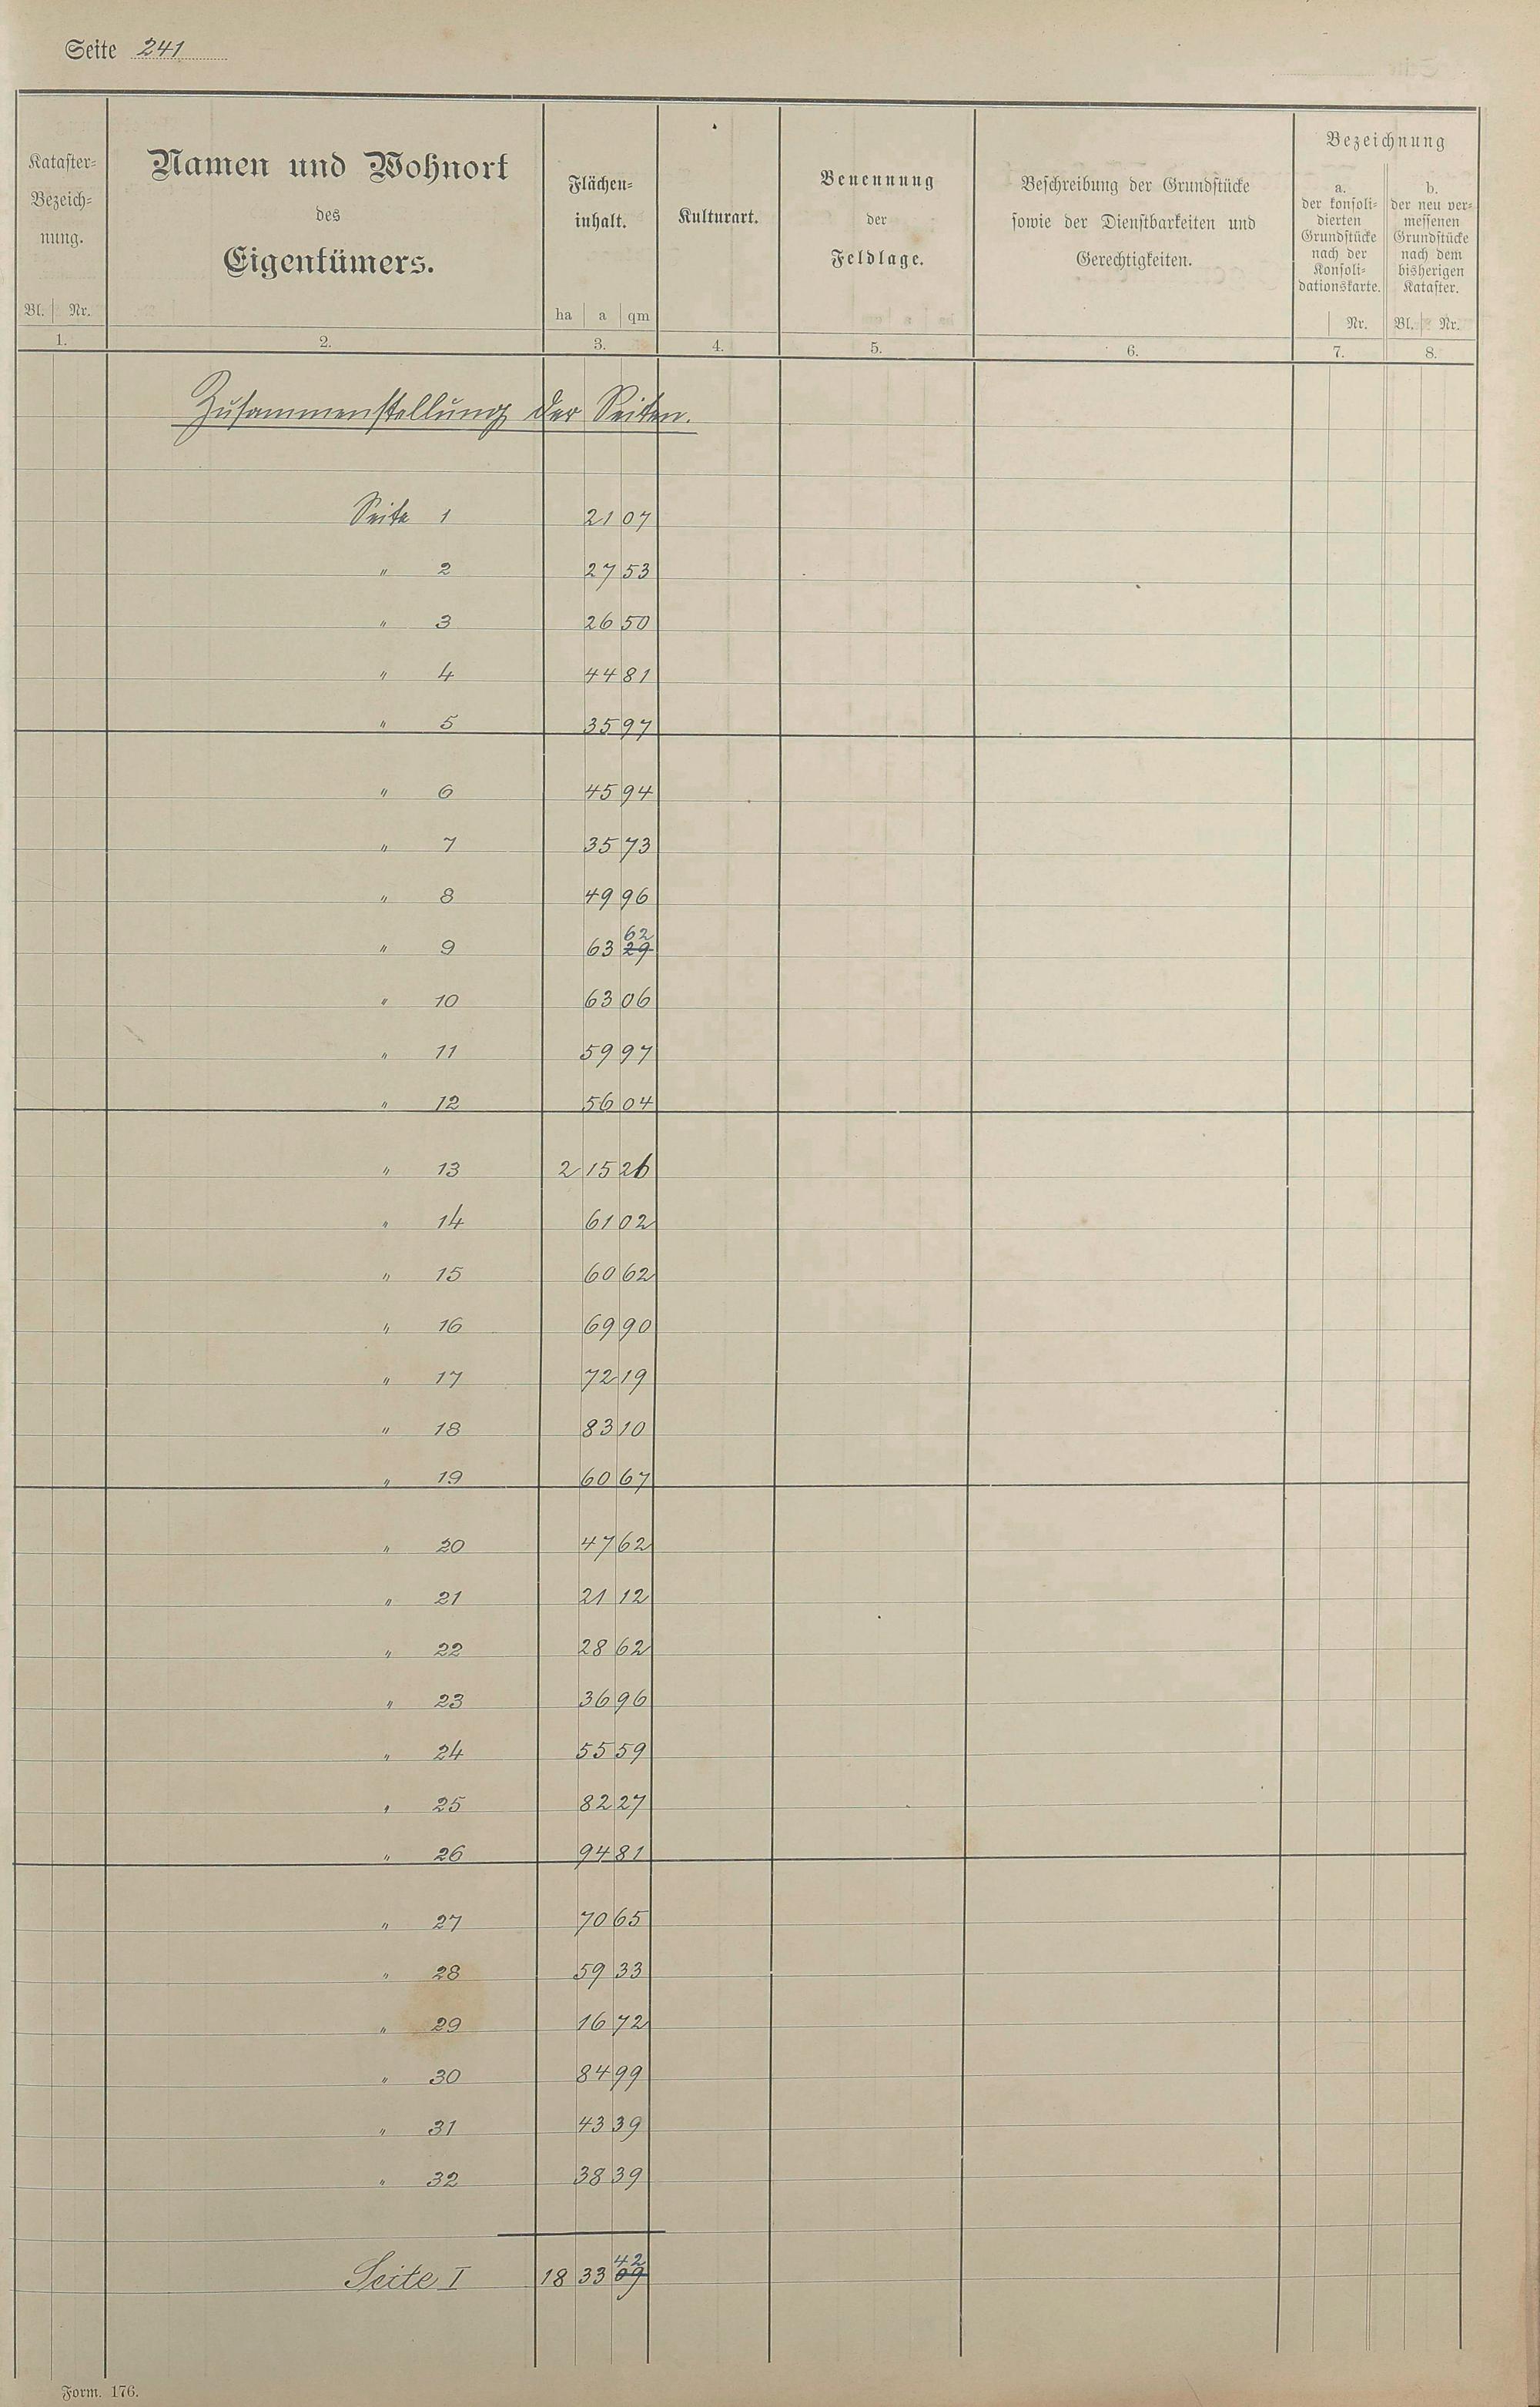 Seite 241
Kataster-
Bezeich-
nung.
Bl. Nr.
1.
Namen und Wohnort
des
Eigentümers.
2.
Flächen-
inhalt.
ha a qm
3.
Kulturart.
4.
Benennung
der
Feldlage.
5.
Beschreibung der Grundstücke
sowie der Dienstbarkeiten und
Gerechtigkeiten.
6.
Bezeichnung
a.
der konsoli-
dierten
Grundstücke
nach der
Konsoli-
dationskarte.
Nr.
7.
b.
der neu ver-
messenen
Grundstücke
nach dem
bisherigen
Kataster.
Bl. Nr.
8.
Zusammenstellung der Seiten.
Seite 1 21 07
" 2 27 53
" 3 26 50
" 4 44 81
" 5 35 97
" 6 45 94
" 7 35 73
" 8 49 96
" 9 63 29 62
" 10 63 06
" 11 59 97
" 12 56 04
" 13 2 15 26
" 14 61 02
" 15 60 62
" 16 69 90
" 17 72 19
" 18 83 10
" 19 60 67
" 20 47 62
" 21 21 12
" 22 28 62
" 23 36 96
" 24 55 59
" 25 82 27
" 26 94 81
" 27 70 65
" 28 59 33
" 29 16 72
" 30 84 99
" 31 43 39
" 32 38 39
Seite I 18 33 09 42
Form. 176.